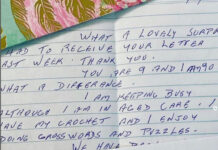 WHAT A LOVELY SURP
HAD TO RECEIVE YOUR LETTER
AST WEEK. THANK YOU.
YOU ARE 9 AND I AM 90
WHAT A DIFFERANCE.
I AM KEEPING BUSY
ALTHOUGH I AM IN AGED CARE. I
HAVE MY CROCHET AND I ENJOY
DOING CROSSWORDS AND PUZZLES.
WE HAVE